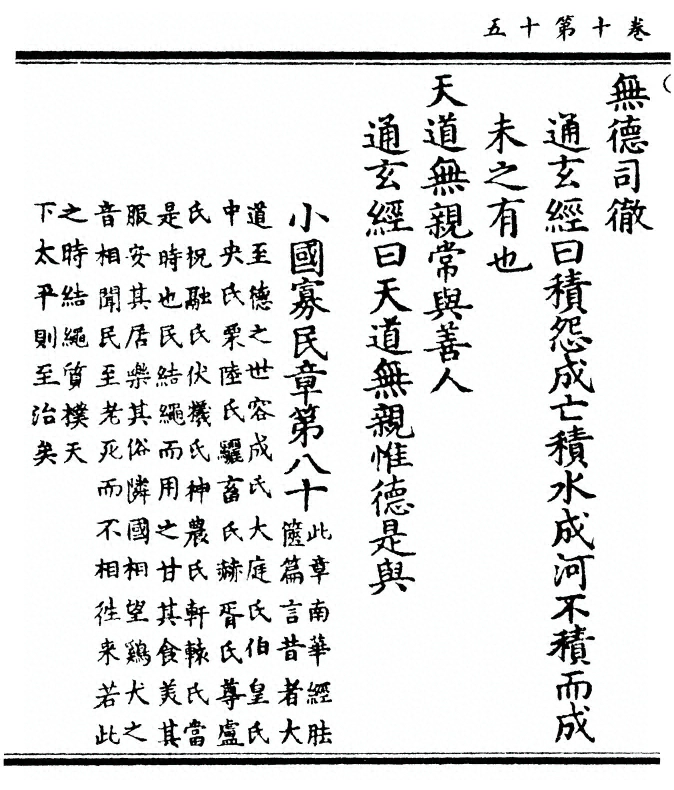 卷十第十五
無德司徹
通玄經曰積怨成亡積水成河不積而成
未之有也
天道無親常與善人
通玄經曰天道無親惟德是與
小國寡民章第八十
此章南華經胠
篋篇言昔者大
道至德之世容成氏大庭氏伯皇氏
中央氏栗陸氏驪畜氏赫胥氏尊盧
氏祝融氏伏犧氏神農氏軒轅氏當
是時也民結繩而用之甘其食美其
服安其居樂其俗隣國相望鷄犬之
音相聞民至老死而不相徃来若此
之時結繩質樸天
下太平則至治矣